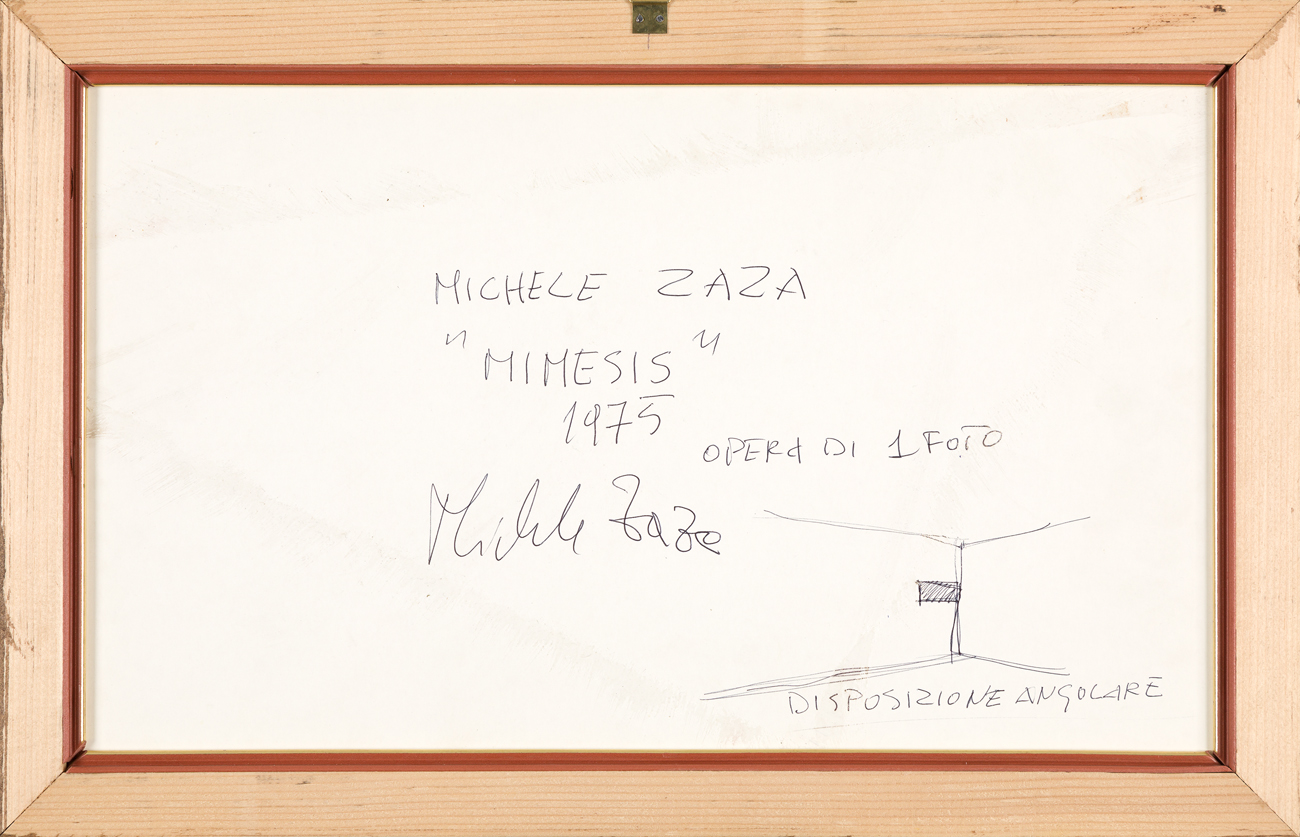 MICHELE ZAZA
"MIMESIS"
1975
OPERA DI 1 FOTO
Michele Zaza
DISPOSIZIONE ANGOLARE